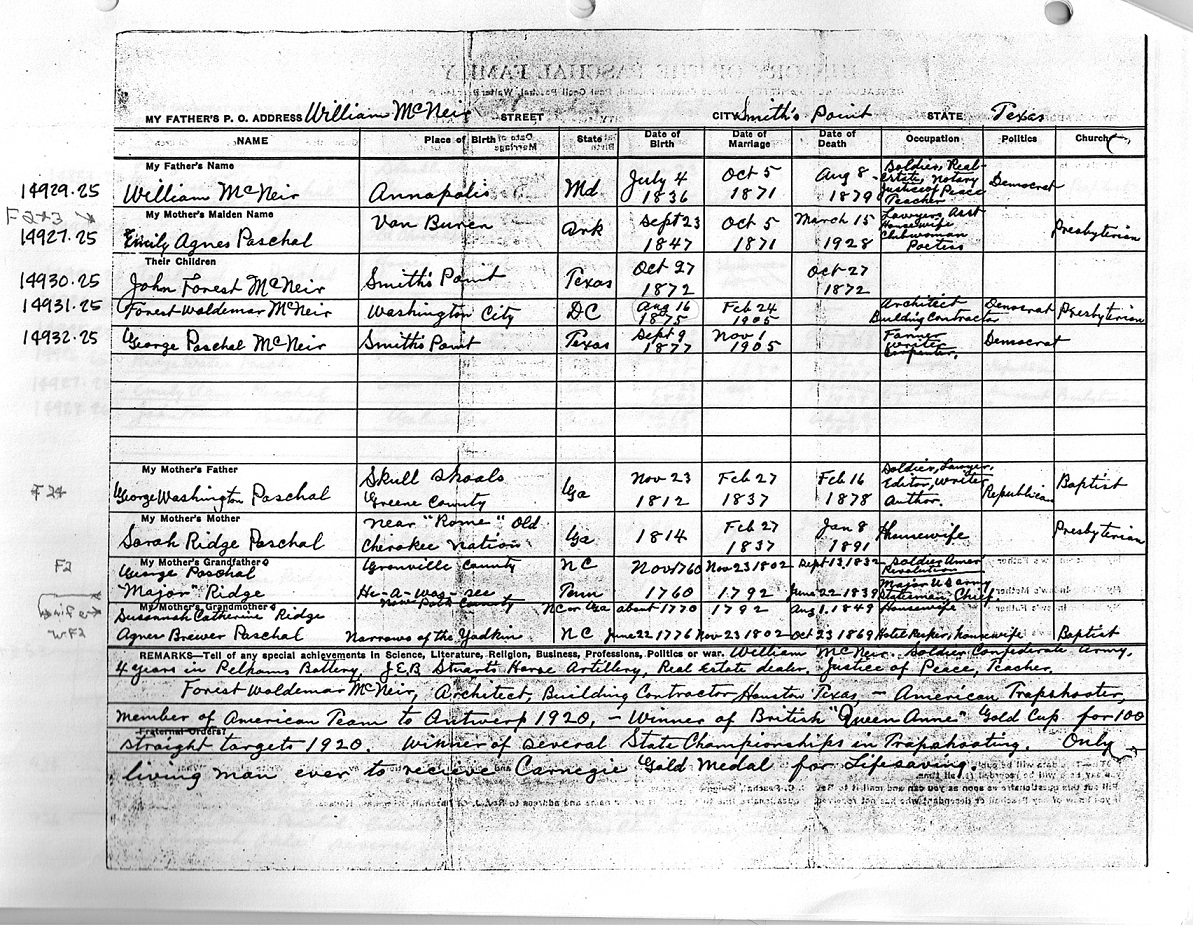 HISTORY OF THE PASCHAL FAMILY
MY FATHER'S P. O. ADDRESS William McNeir STREET CITY Smith's Point STATE Texas
NAME Place of Birth State Date of Birth Date of Marriage Date of Death Occupation Politics Church
My Father's Name
14929.25 William McNeir Annapolis Md July 4 1836 Oct 5 1871 Aug 8 - 1879 Soldier, Real-estate, Notary Justice of Peace Teacher Democrat
F2+3
My Mother's Maiden Name
14927.25 Emily Agnes Paschal Van Buren Ark Sept 23 1847 Oct 5 1871 March 15 1928 Lawyers Asst Housewife Clubwoman Poetess Presbyterian
Their Children
14930.25 John Forest McNeir Smith's Point Texas Oct 27 1872 Oct 27 1872
14931.25 Forest Waldemar McNeir Washington City DC Aug 16 1875 Feb 24 1905 Architect Building Contractor Democrat Presbyterian
14932.25 George Paschal McNeir Smith's Point Texas Sept 9 1877 Nov 1 1905 Farmer Writer Carpenter. Democrat
My Mother's Father
F24 George Washington Paschal Skull Shoals Greene County Ga Nov 23 1812 Feb 27 1837 Feb 16 1878 Soldier, Lawyer, Editor, Writer Author. Republican Baptist
My Mother's Mother
Sarah Ridge Paschal near "Rome" Old Cherokee Nation Ga 1814 Feb 27 1837 Jan 8 1891 Housewife Presbyterian
My Mother's Grandfathers
F2 George Paschal Granville County NC Nov 1760 Nov 23 1802 Sept 13, 1832 Soldier Amer Revolution
"Major" Ridge Hi-a-was-see Tenn 1760 1792 June 22 1839 Major US army Statesman Chief
now Polk County
My Mother's Grandmothers
Susannah Catherine Ridge NC or Ga about 1770 1792 Aug 1. 1849 Housewife
Agnes Brewer Paschal Narrows of the Yadkin NC June 22 1776 Nov 23 1802 Oct 23 1869 Hotel Keeper, housewife Baptist
REMARKS—Tell of any special achievements in Science, Literature, Religion, Business, Professions, Politics or war. William McNeir. Soldier Confederate Army,
4 years in Pelhams Battery, J.E.B Stuarts Horse Artillery, Real Estate dealer. Justice of Peace, Teacher.
Forest Waldemar McNeir, Architect, Building Contractor, Houston Texas, - American Trapshooter,
member of American Team to Antwerp 1920, - Winner of British "Queen Anne" Gold Cup for 100
Fraternal Orders?
straight targets 1920. Winner of several State Championships in Trapshooting. Only
living man ever to recieve Carnegie Gold Medal for Lifesaving.